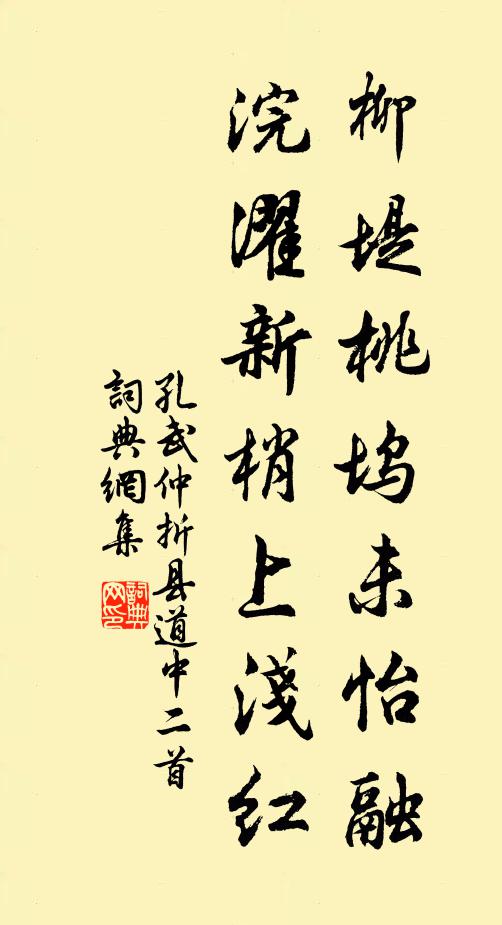 柳堤桃坞未怡融
浣濯新梢上淺红
孔武仲折县道中二首
詞典網集
詞典网印